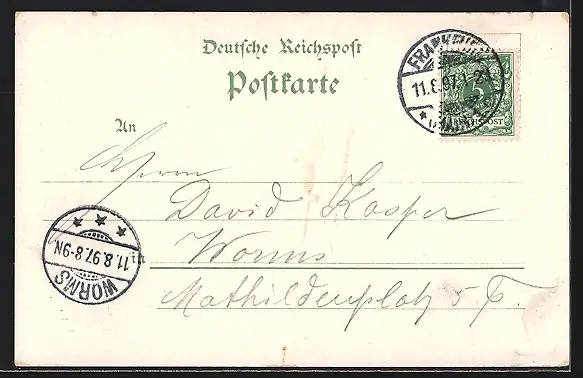 Deutsche Reichspost
Postkarte
FRANKENTHAL
11.8.97. 1-2N
5
REICHSPOST
An
Herrn
David Kasper
in Worms
Mathildenplatz 5
WORMS
11.8.97. 8-9N